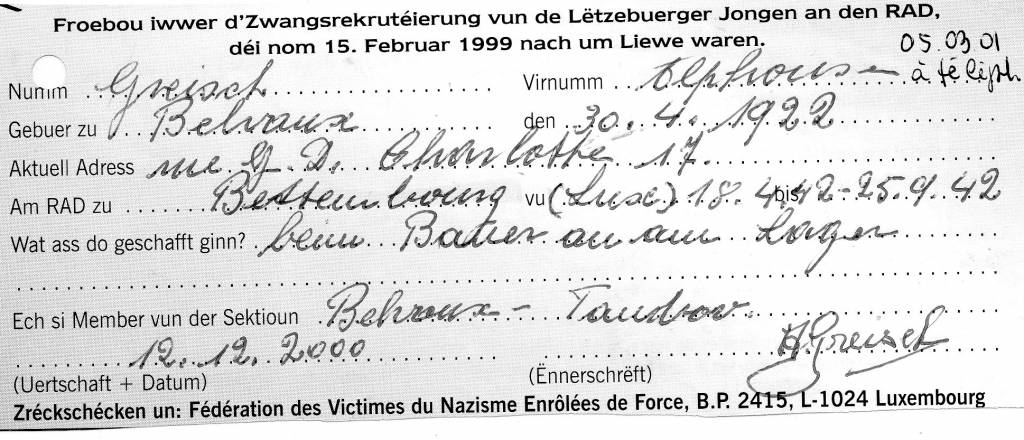 Froebou iwwer d'Zwangsrekrutéierung vun de Lëtzebuerger Jongen an den RAD,
déi nom 15. Februar 1999 nach um Liewe waren.
05.03.01
à téléph
Numm Greisch Virnumm Alphons
Gebuer zu Belvaux den 30.4.1922
Aktuell Adress rue G.D. Charlotte 17.
Am RAD zu Bettembourg vu (Lux) 18.4.42 bis - 25.9.42
Wat ass do geschafft ginn? beim Bauer an am Lager
Ech si Member vun der Sektioun Belvaux -
12.12.2000 A Greisch
(Uertschaft + Datum) (Ënnerschrëft)
Zréckschécken un: Fédération des Victimes du Nazisme Enrôlées de Force, B.P. 2415, L-1024 Luxembourg